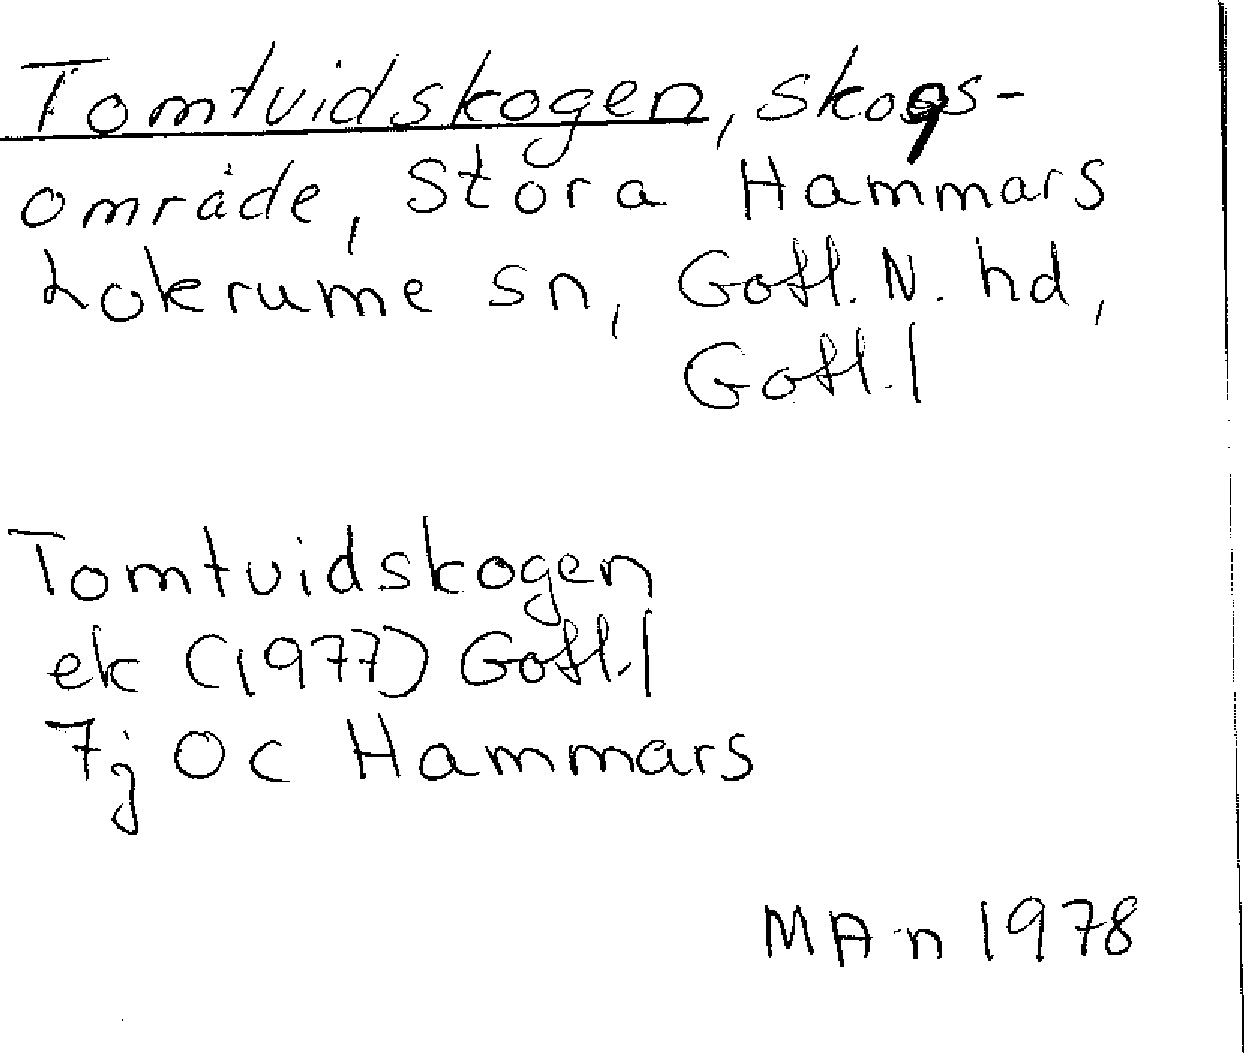 Tomtvidskogen, skogs-
område, Stora Hammars
Lokrume sn, Gotl. N. hd,
Gotl. l
Tomtvidskogen
ek (1977) Gotl. l
7j 0c Hammars
MA-n 1978